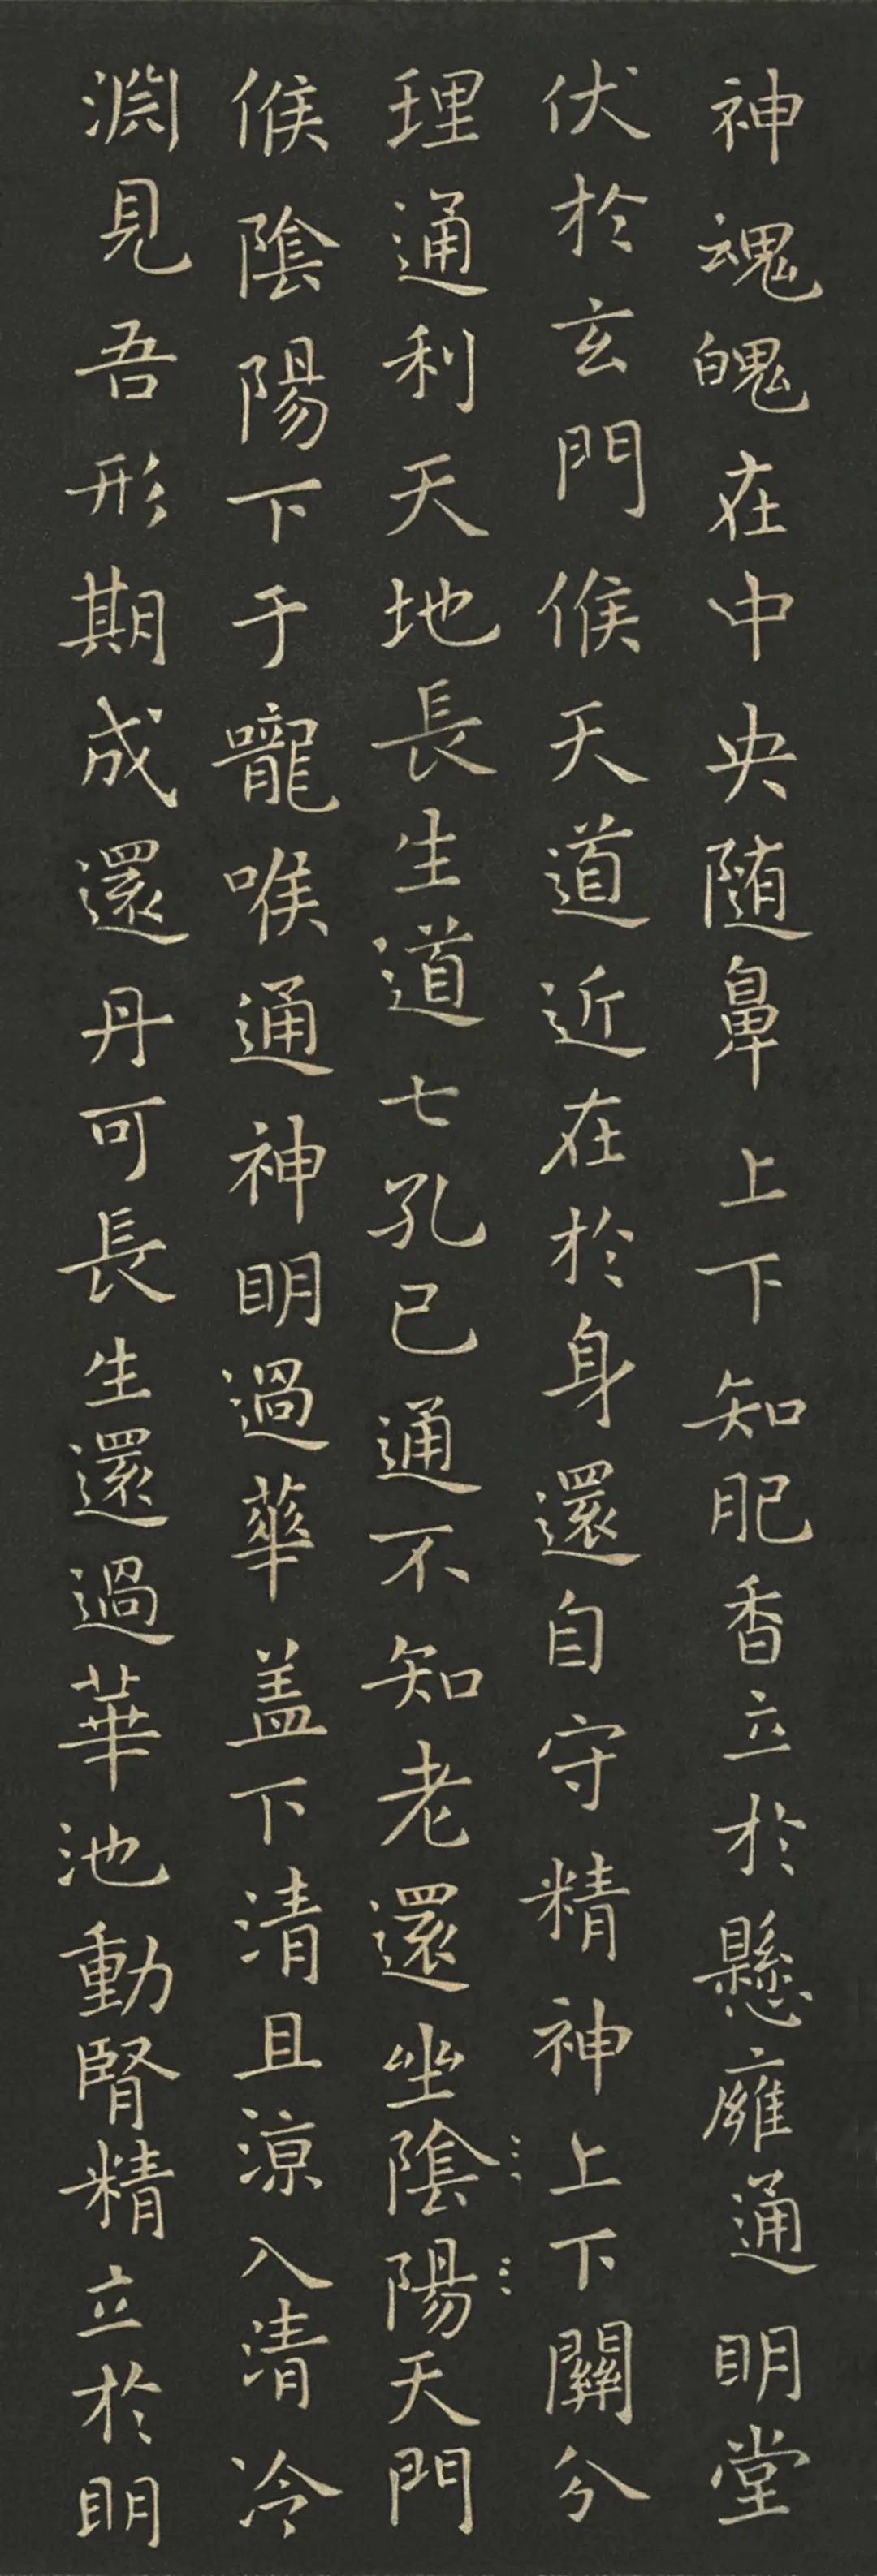 神魂魄在中央随鼻上下知肥香立於懸癕通明堂
伏於玄門候天道近在於身還自守精神上下關分
理通利天地長生道七孔已通不知老還坐陰陽天門
候陰陽下于嚨喉通神明過華盖下清且涼入清冷
渊見吾形期成還丹可長生還過華池動腎精立於明